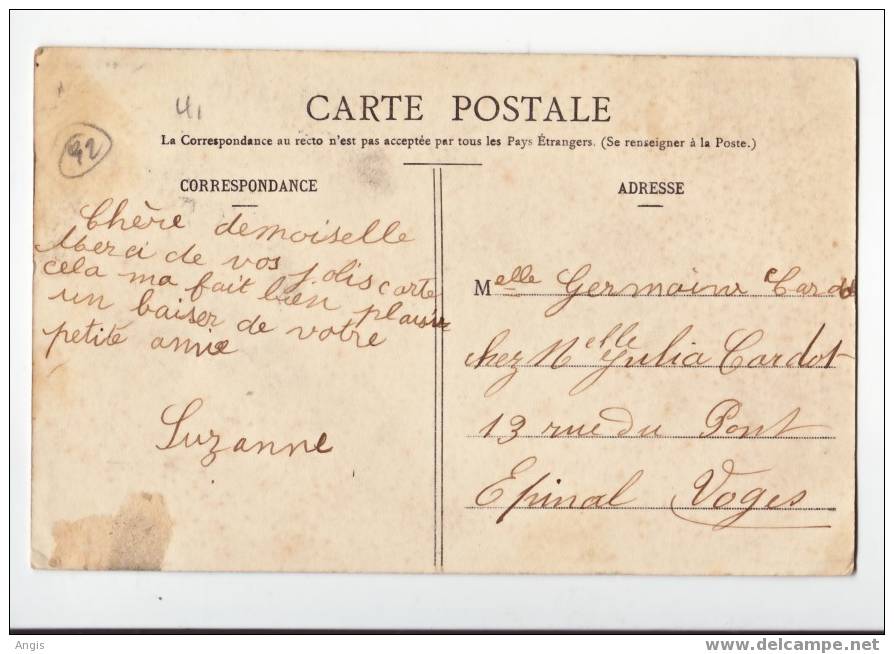 41
92
CARTE POSTALE
La Correspondance au recto n'est pas acceptée par tous les Pays Étrangers. (Se renseigner à la Poste.)
CORRESPONDANCE
Chère demoiselle
Merci de vos jolis carte
cela ma fait bien plaisir
un baiser de votre
petite amie
Suzanne
ADRESSE
Melle Germaine Cardot
chez Melle Julia Cardot
13 rue du Pont
Epinal Voges
Angis
www.delcampe.net